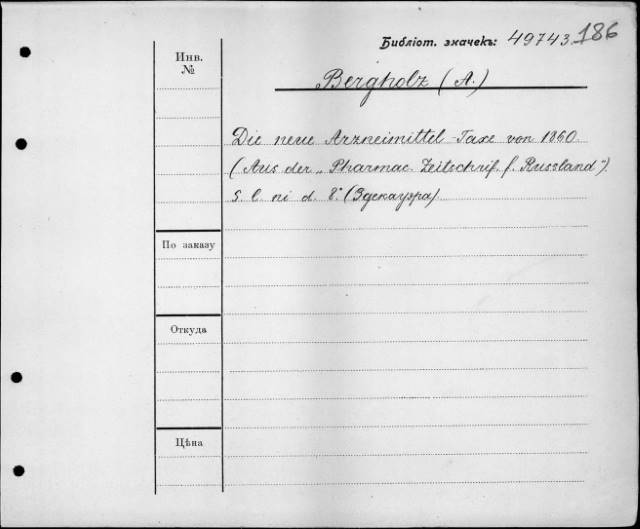 Библіот. значекъ: 49743 186
Инв.
№
Bergholz (A.)
Die neue Arzneimittel-Taxe von 1860.
(Aus der „Pharmac. Zeitschrif. f. Russland").
S. l. ni d. 8°. (Эдекауэра).
По заказу
Откуда
Цѣна